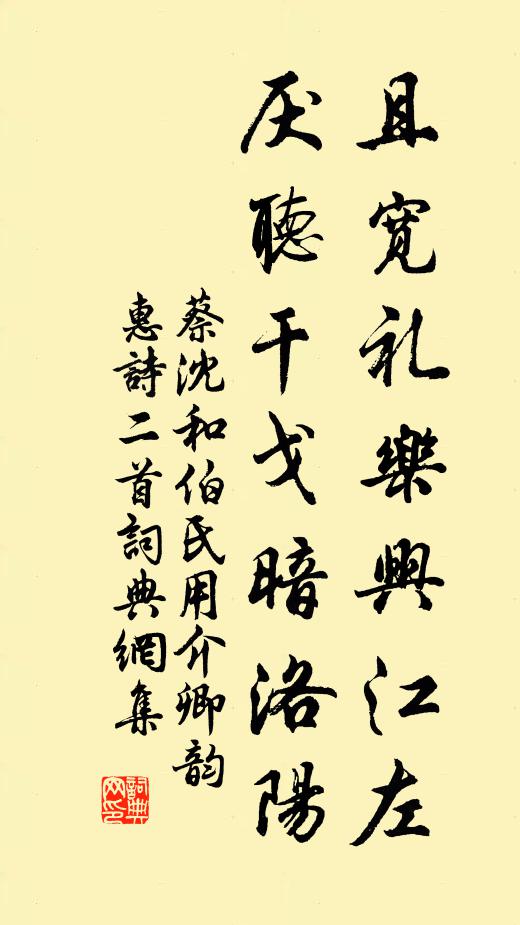 且寛礼樂興江左
厌聴干戈暗洛陽
蔡沈和伯氏用介卿韵
惠詩二首詞典網集
詞典网印